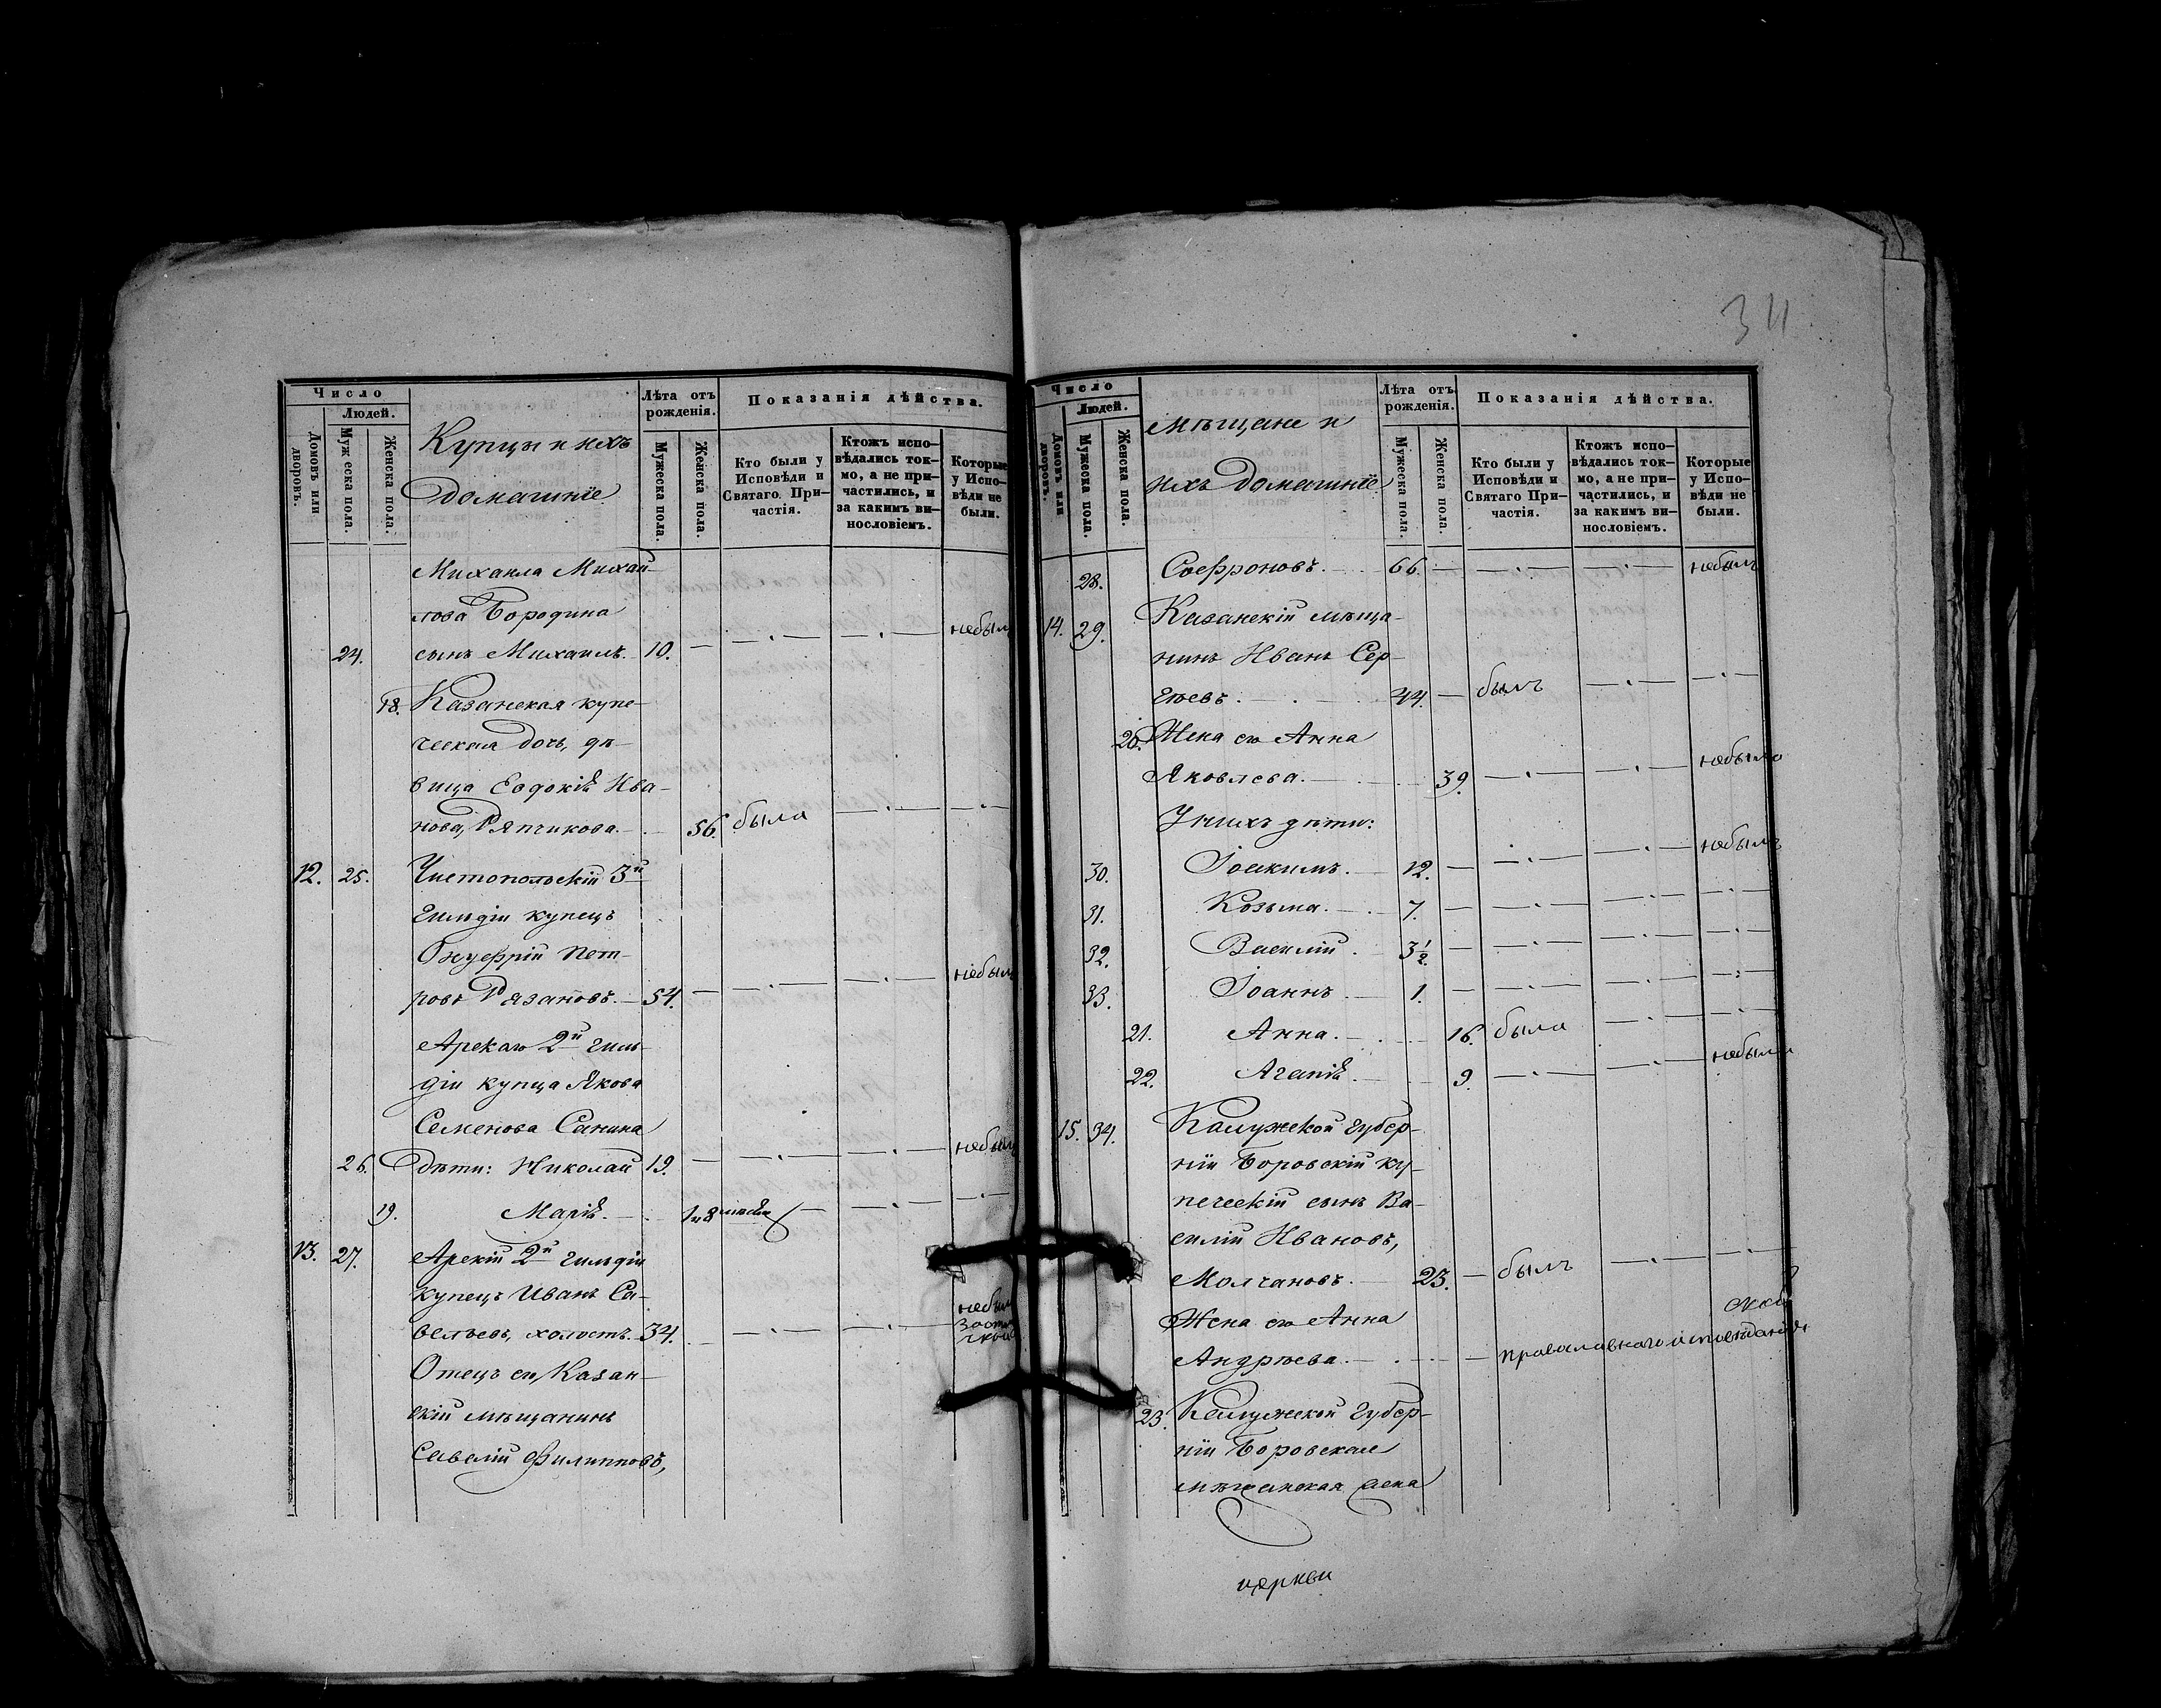 Число
Людей.
Домовъ или дворовъ.
Мужеска пола.
Женска пола.
Купцы и ихъ
домашніе
Лѣта отъ рожденія.
Мужеска пола.
Женска пола.
Показанія дѣйства.
Кто были у Исповѣди и Святаго При-частія.
Ктожъ испо-вѣдались ток-мо, а не при-частились, и за какимъ ви-нословіемъ.
Которые у Испо-вѣди не были.
Михаила Михай-
лова Бородина
24. сынъ Михаилъ. 10. небылъ
18. Казанская купе-
ческая дочь, дѣ-
вица Евдокія Ива-
нова, Ряпчикова. 56. была
12. 25. Чистопольскій 3й
гильдіи купецъ
Онуфрій Пет-
ровъ Рязановъ. 54. небылъ
Арскаго 2й гиль-
діи купца Якова
Семенова Санина
26. дѣти: Николай 19. небылъ
19. Марія. 1 и 8
13. 27. Арскій 2й гильдіи
купецъ Иванъ Са-
вельевъ, холостъ. 34. небылъ
Отецъ его Казан-
скій мѣщанинъ
Савелій Филипповъ,
34
Число
Людей.
Домовъ или дворовъ.
Мужеска пола.
Женска пола.
мѣщане и
ихъ домашніе
Лѣта отъ рожденія.
Мужеска пола.
Женска пола.
Показанія дѣйства.
Кто были у Исповѣди и Святаго При-частія.
Ктожъ испо-вѣдались ток-мо, а не при-частились, и за какимъ ви-нословіемъ.
Которые у Испо-вѣди не были.
28. Софроновъ. 66. небылъ
14. 29. Казанскій мѣща-
нинъ Иванъ Сер-
гѣевъ. 44. былъ
20. Жена его Анна
Яковлева. 39. небыла
У нихъ дѣти:
30. Іоакимъ. 12. небылъ
31. Козьма. 7.
32. Василій. 3½.
33. Іоаннъ 1.
21. Анна. 16. была
22. Агапія. 9. небыла
15. 34. Калужской губер-
ніи Боровскій ку-
печескій сынъ Ва-
силій Ивановъ,
Молчановъ. 23. былъ
Жена его Анна
Андрѣева. православнаго исповѣданія
23. Калужской губер-
ніи Боровская
мѣщанская жена
церкви